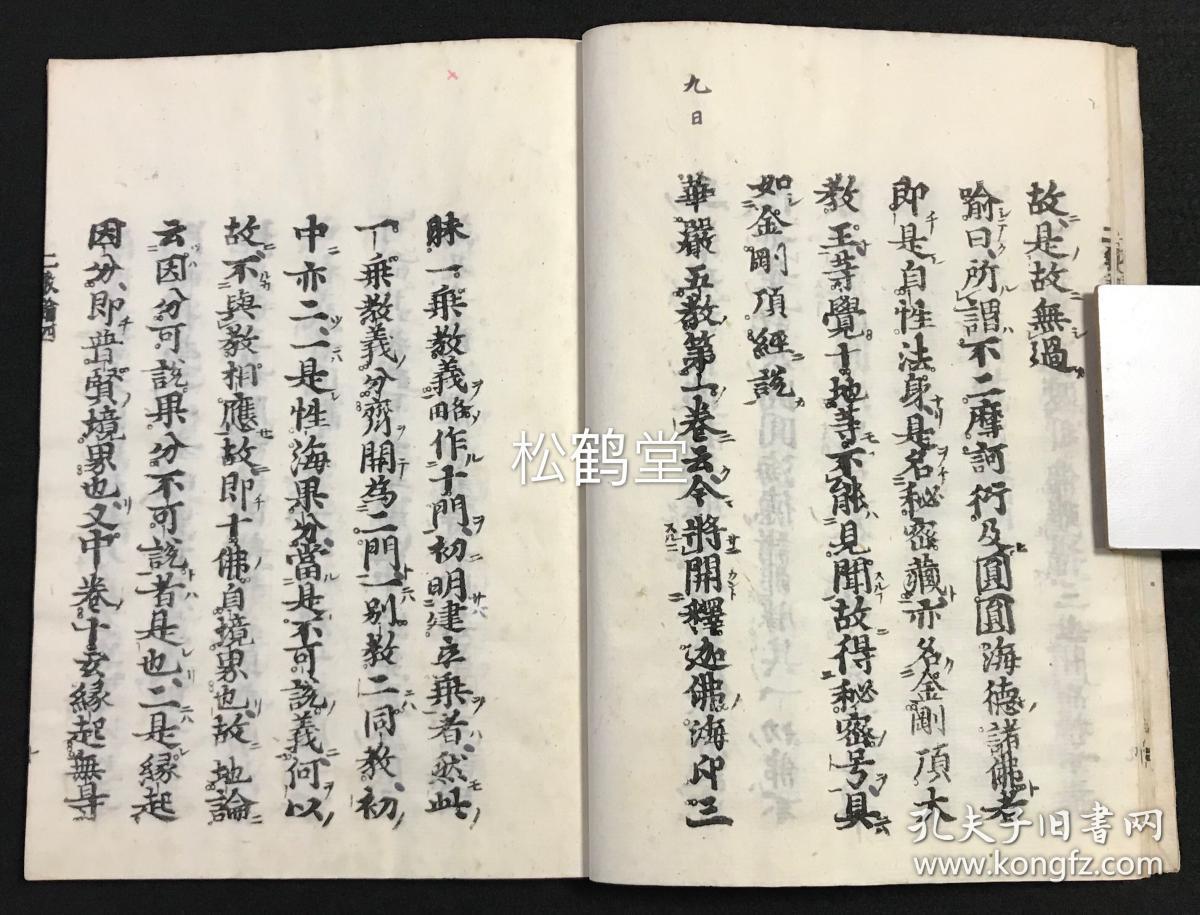 九日
故是故無過
喻曰所謂不二摩訶衍及圓圓海德諸佛者
即是自性法身是名秘密藏亦名金剛頂大
教王等覺十地等不能見聞故得秘密号具
如金剛頂經說
華嚴五教第一卷云今將開釋迦佛海印三
昧一乗教義略作十門初明建立乗者然此
一乗教義分齊開為二門一別教二同教初
中亦二一是性海果分當是不可說義何以
故不與教相應故即十佛自境界也故地論
云因分可說果分不可說者是也二是緣起
因分即普賢境界也又中卷十玄緣起無㝵
二教論
松鹤堂
孔夫子旧书网
www.kongfz.com